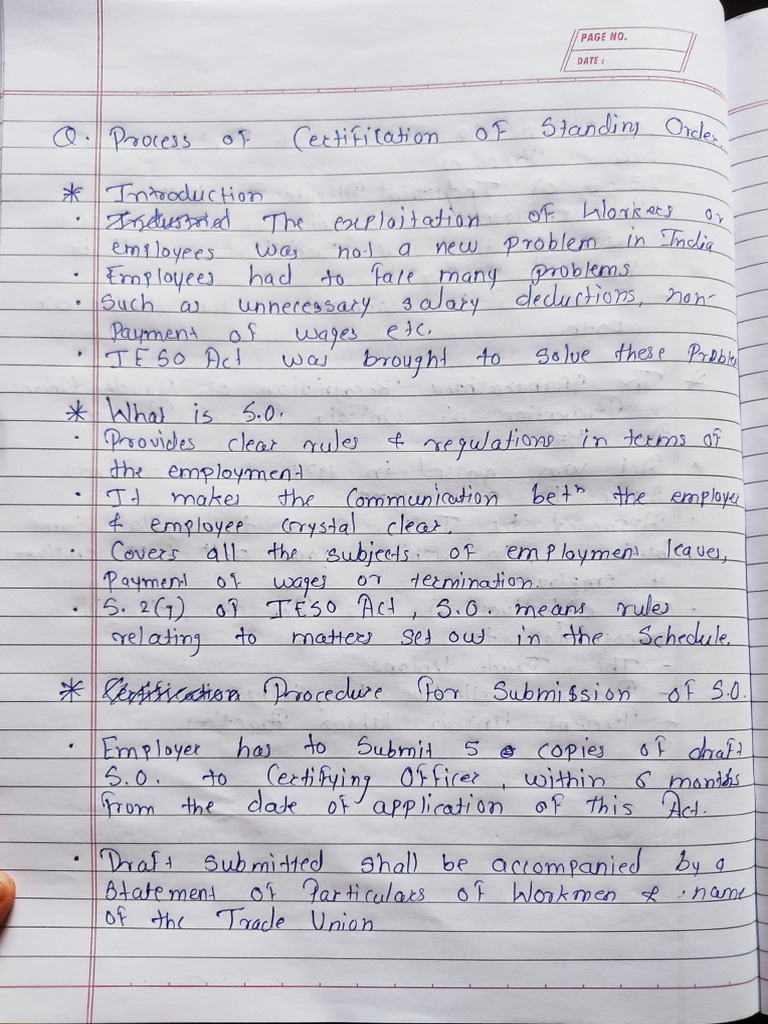 PAGE NO.
DATE :
Q. Process of Certification of Standing Order.
* Introduction
· Industried The exploitation of Workers or
employees was not a new problem in India
· Employees had to face many problems
· Such as unnecessary salary deductions, non-
Payment of wages etc.
· IESO Act was brought to solve these Proble
* What is S.O.
· Provides clear rules & regulations in terms of
the employment
· It makes the Communication betn the employe
& employee crystal clear.
· Covers all the subjects of employment leaves,
Payment of wages or termination.
· S. 2(g) of IESO Act, S.O. means rules
relating to matters set out in the Schedule.
* Certification Procedure for Submission of S.O.
· Employer has to Submit 5 copies of draft
S.O. to Certifying Officer, within 6 months
from the date of application of this Act.
· Draft submitted shall be accompanied by a
Statement of Particulars of Workmen & name
of the Trade Union